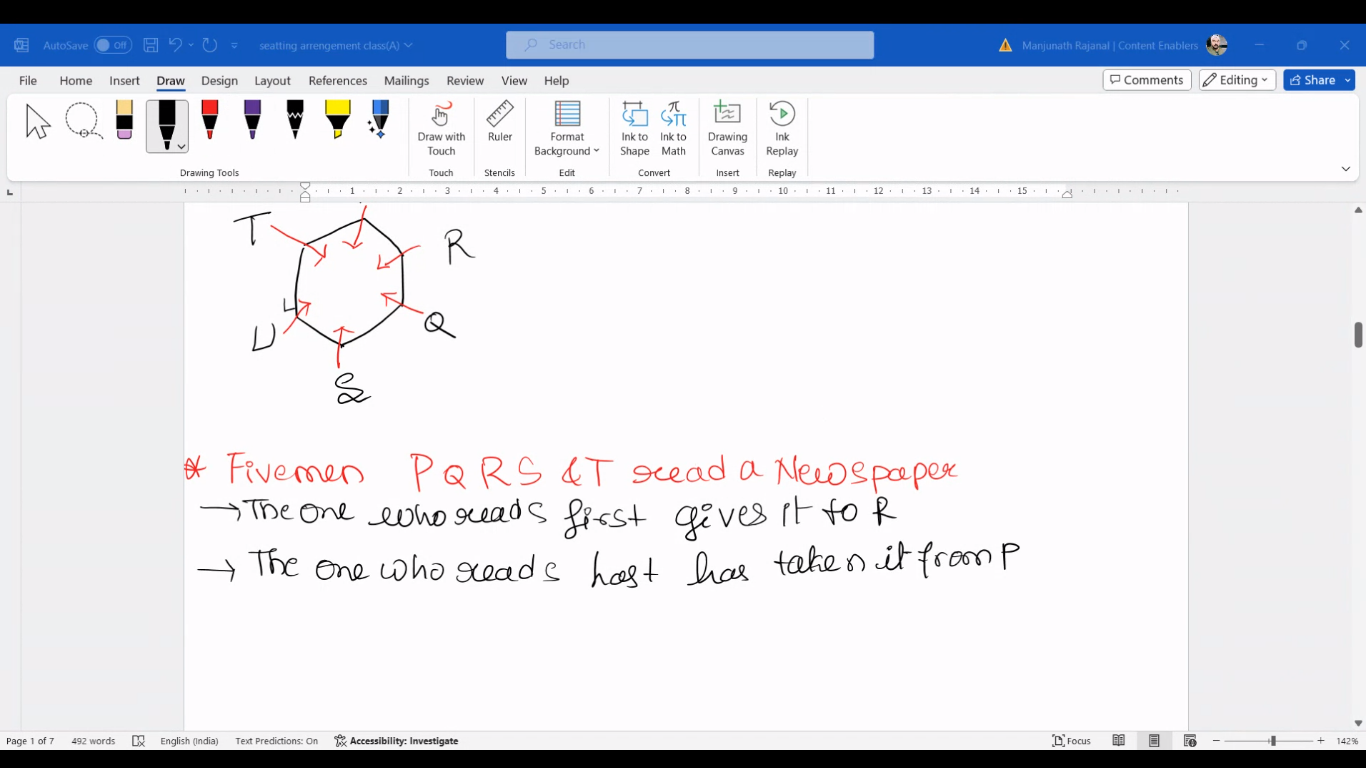 AutoSave Off seatting arrengement class(A) Search Manjunath Rajanal | Content Enablers
File Home Insert Draw Design Layout References Mailings Review View Help Comments Editing Share
Draw with Touch Ruler Format Background Ink to Shape Ink to Math Drawing Canvas Ink Replay
Drawing Tools Touch Stencils Edit Convert Insert Replay
1 2 3 4 5 6 7 8 9 10 11 12 13 14 15
T
R
U
Q
S
* Fivemen P Q R S & T read a Newspaper
→ The one who reads first gives it to R
→ The one who reads hast has taken it from P
Page 1 of 7 492 words English (India) Text Predictions: On Accessibility: Investigate Focus 142%